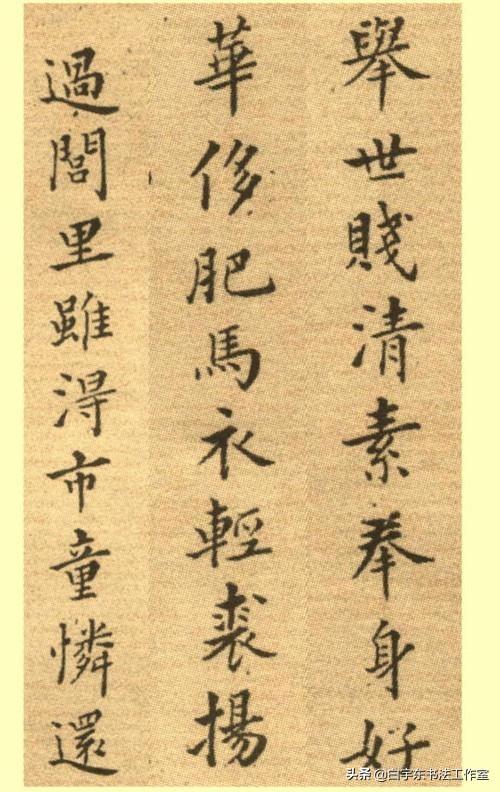 舉世賤清素奉身好
華侈肥馬衣輕裘揚
過閭里雖得市童憐還
头条 @白宇东书法工作室